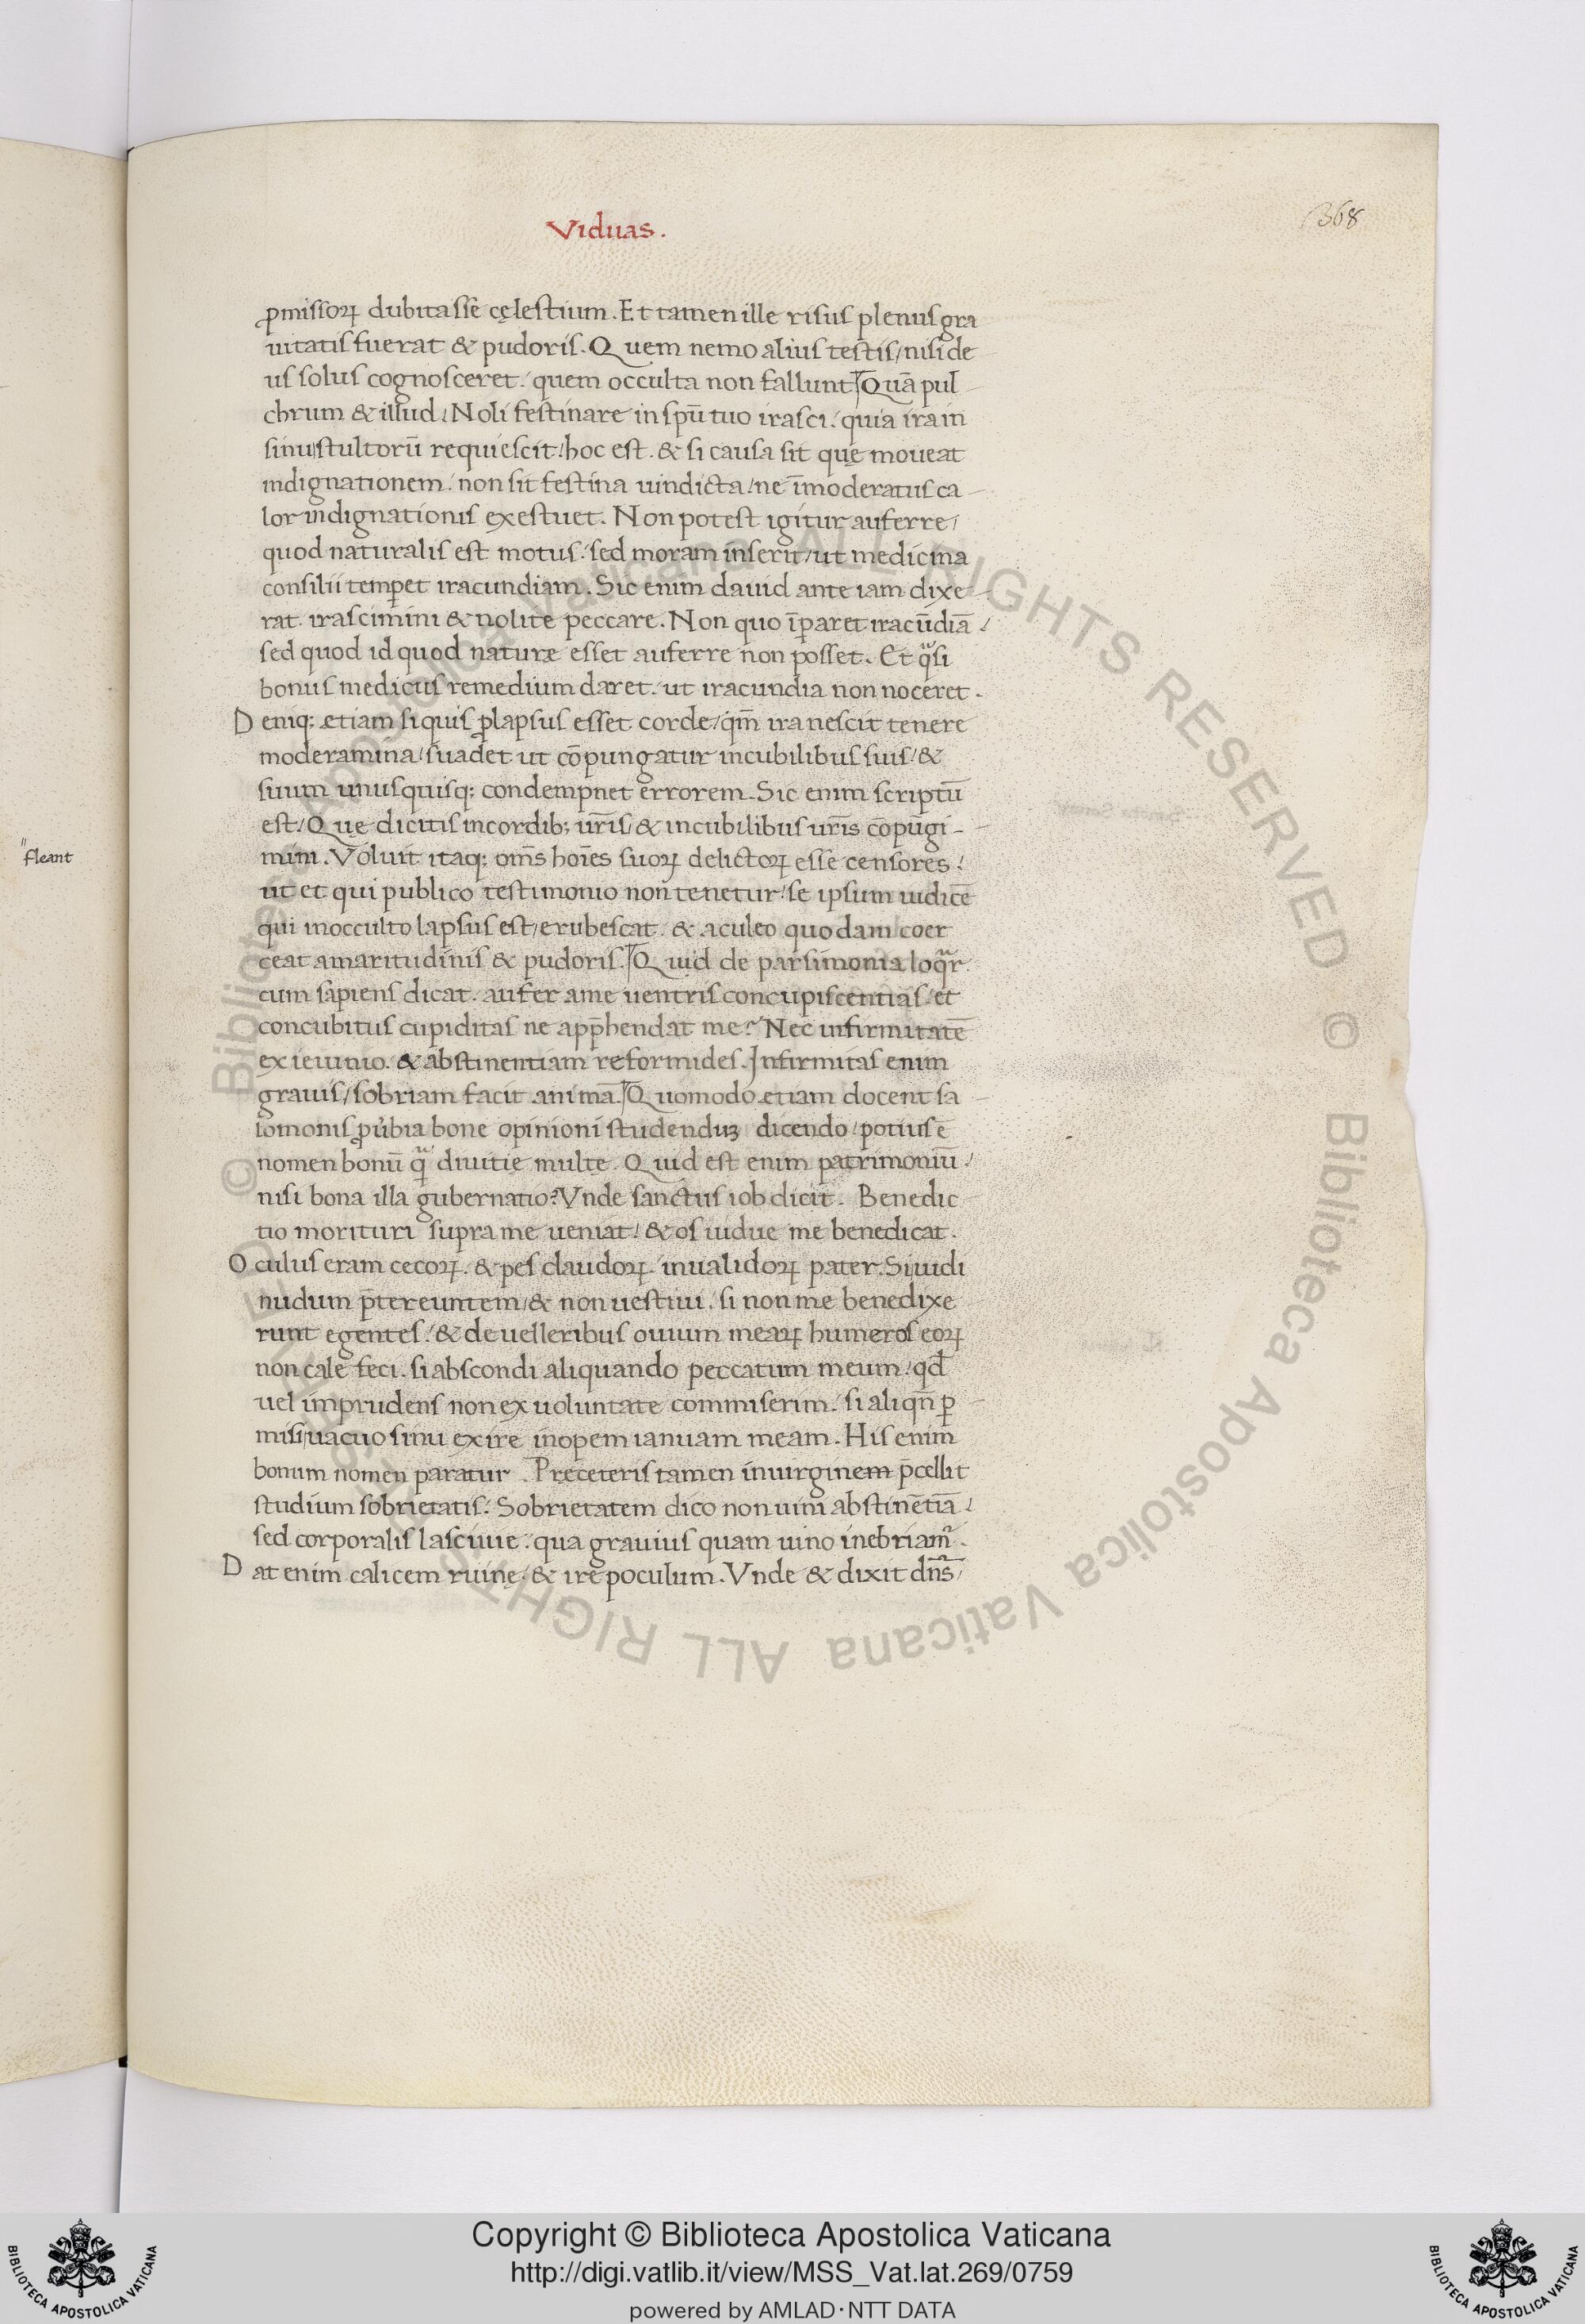 Viduas.
368
ꝓmissoꝝ dubitasse cęlestium. Et tamen ille risus plenus gra
uitatis fuerat & pudoris. Quem nemo alius testis/ nisi de
us solus cognosceret. quem occulta non fallunt Quā pul
chrum & illud/ Noli festinare in spū tuo irasci. quia ira in
sinu stultorū requiescit/ hoc est. & si causa sit quę moueat
indignationem. non sit festina uindicta/ ne īmoderatus ca
lor indignationis exestuet. Non potest igitur auferre/
quod naturalis est motus. sed moram inserit/ ut medicina
consilii temꝑet iracundiam. Sic enim dauid ante iam dixe
rat. irascimini & nolite peccare. Non quo īꝑaret iracūdiā/
sed quod id quod naturæ esset auferre non posset. Et qͣsi
bonus medicus remedium daret. ut iracundia non noceret.
Deniq; etiam si quis ꝓlapsus esset corde/ qm̄ ira nescit tenere
moderamina/ suadet ut cōpungatur in cubilibus suis/ &
suum unusquisq; condempnet errorem. Sic enim scriptū
est/ Quę dicitis in cordib; ur̄is/ & in cubilibus ur̄is cōpūgi-
mini. Voluit itaq; om̄s hoīes suoꝝ delictoꝝ esse censores/
ut et qui publico testimonio non tenetur/ se ipsum iudicē
qui in occulto lapsus est/ erubescat. & aculeo quodam coer
ceat amaritudinis & pudoris. Quid de parsimonia loqͣr.
cum sapiens dicat. aufer a me uentris concupiscentias/ et
concubitus cupiditas ne app̄hendat me? Nec infirmitatē
ex ieiunio. & abstinentiam reformides. Infirmitas enim
grauis/ sobriam facit animā. Quomodo etiam docent sa
lomonis ꝓu̓bia bone opinioni studenduꝫ dicendo/ potius ē
nomen bonū qͣ̄ diuitię multę. Quid est enim patrimoniū/
nisi bona illa gubernatio? Vnde sanctus iob dicit. Benedic
tio morituri supra me ueniat/ & os uidue me benedicat.
Oculus eram cecoꝝ. & pes claudoꝝ. inualidoꝝ pater. Si uidi
nudum p̄tereuntem/ & non uestiui. si non me benedixe
runt egentes/ & de uelleribus ouium meaꝝ humeros eoꝝ
non cale feci. si abscondi aliquando peccatum meum/ qd̄
uel imprudens non ex uoluntate commiserim. si aliqn̄ ꝑ
misi uacuo sinu exire inopem ianuam meam. His enim
bonum nomen paratur. Pręceteris tamen in uirginem p̄cellit
studium sobrietatis. Sobrietatem dico non uini abstinētiā/
sed corporalis lasciuie. qua grauius quam uino inebriam̃.
Dat enim calicem ruinę. & irę poculum. Vnde & dixit dn̄s/
fleant
© Biblioteca Apostolica Vaticana ALL RIGHTS RESERVED © Biblioteca Apostolica Vaticana ALL RIGHTS RESERVED
Copyright © Biblioteca Apostolica Vaticana
http://digi.vatlib.it/view/MSS_Vat.lat.269/0759
powered by AMLAD·NTT DATA
BIBLIOTECA APOSTOLICA VATICANA
BIBLIOTECA APOSTOLICA VATICANA